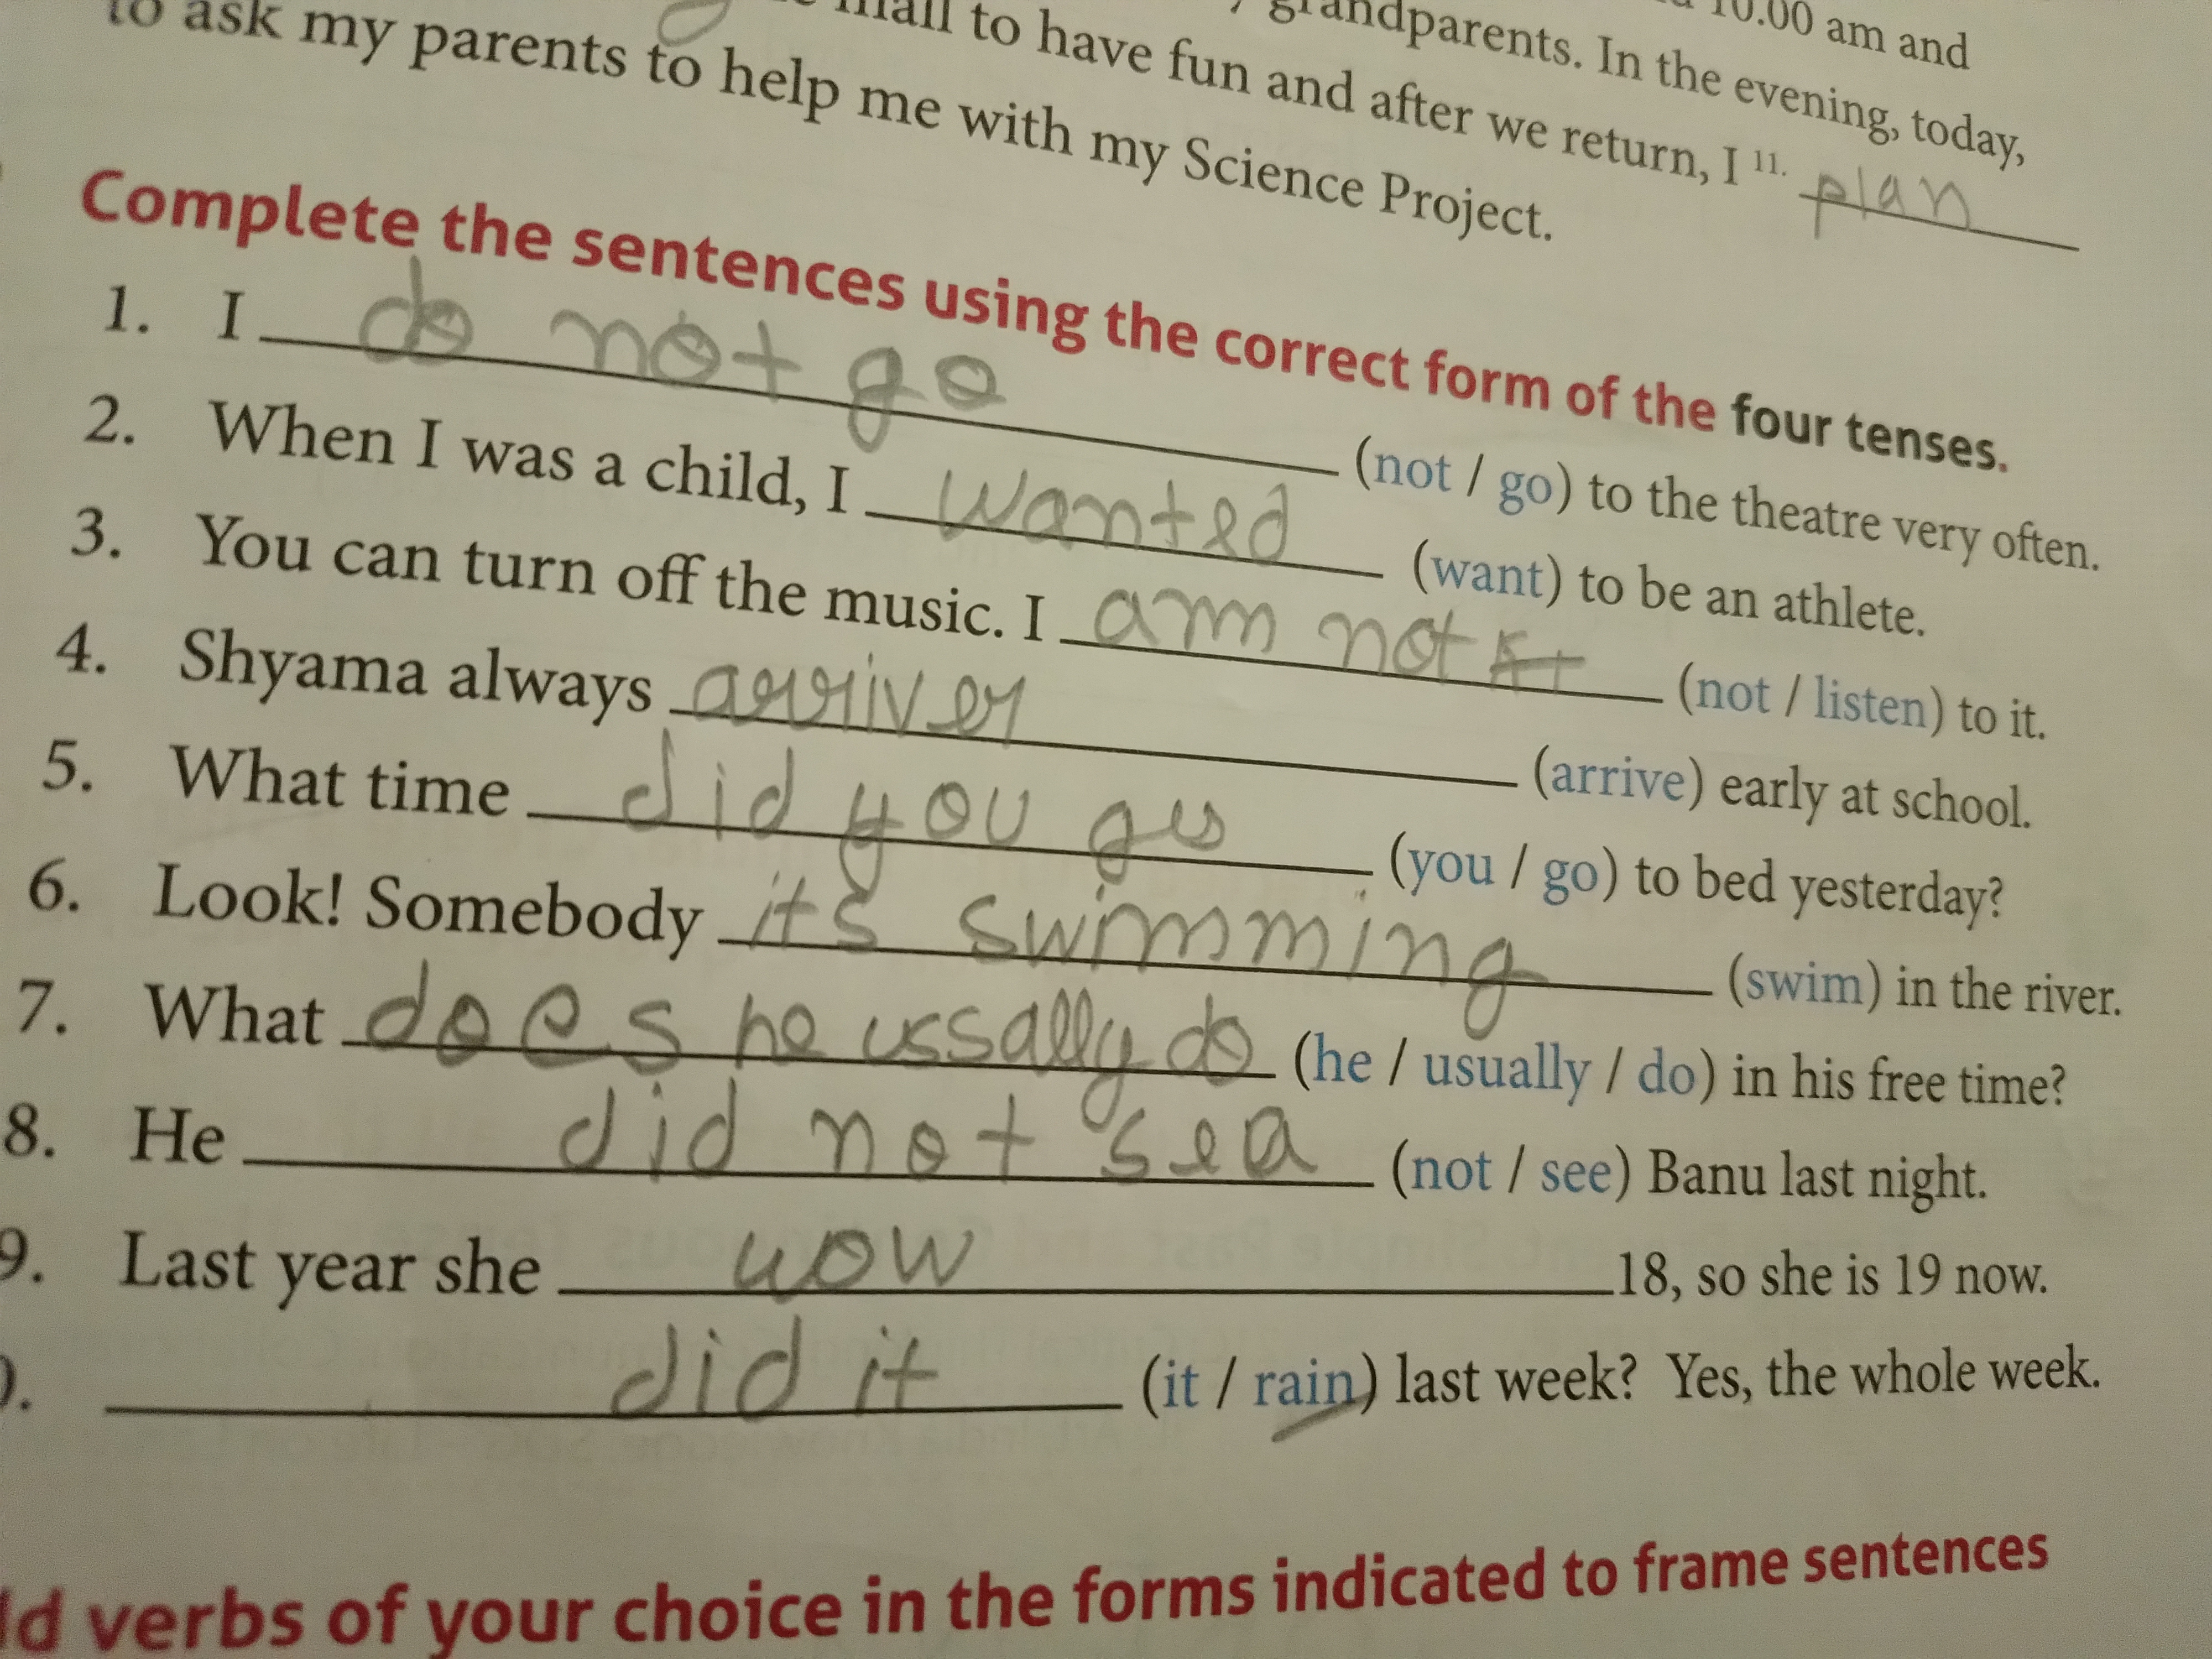 to ask my parents to help me with my Science Project.
mall to have fun and after we return, I 11. plan
grandparents. In the evening, today,
10.00 am and
Complete the sentences using the correct form of the four tenses.
1. I do not go (not / go) to the theatre very often.
2. When I was a child, I wanted (want) to be an athlete.
3. You can turn off the music. I am not (not / listen) to it.
4. Shyama always (arrive) early at school.
5. What time did you (you / go) to bed yesterday?
6. Look! Somebody its swimming (swim) in the river.
7. What does he ussally do (he / usually / do) in his free time?
8. He did not sea (not / see) Banu last night.
9. Last year she 18, so she is 19 now.
did it (it / rain) last week? Yes, the whole week.
verbs of your choice in the forms indicated to frame sentences